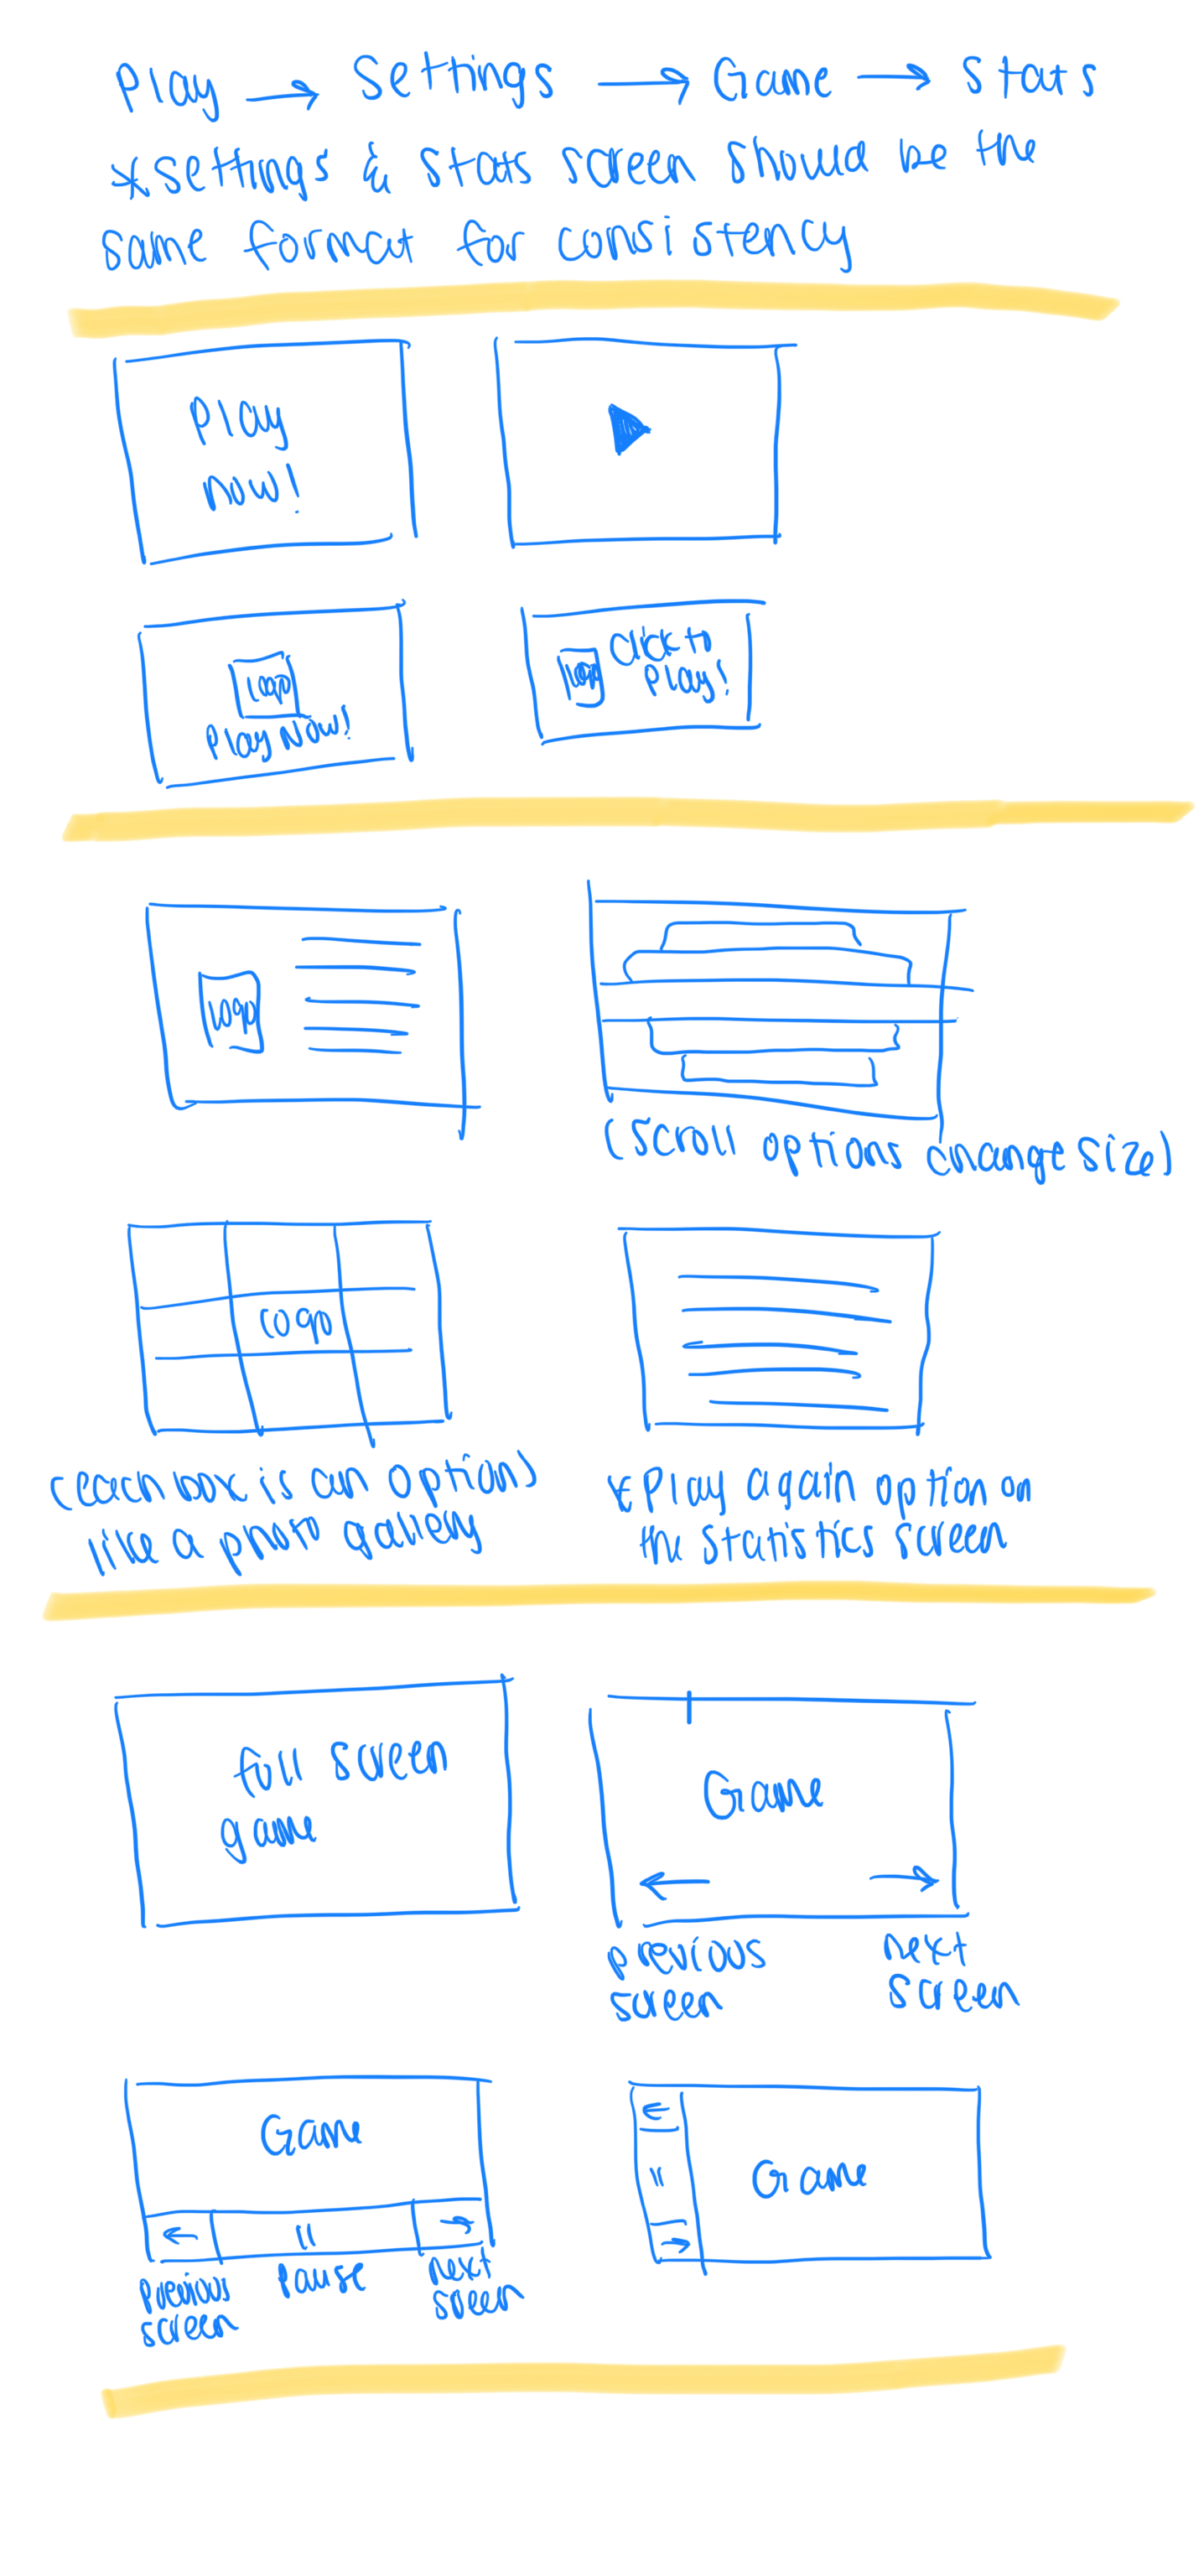 Play → Settings → Game → Stats
*Settings & stats screen should be the
same format for consistency
Play
now!
Logo
Play Now!
Logo
Click to
Play!
Logo
(Scroll options change size)
Logo
(each box is an option)
like a photo gallery
*Play again option on
the statistics screen
full screen
game
Game
← →
previous
screen
next
screen
Game
← II →
previous
screen
Pause
next
screen
←
II
→
Game